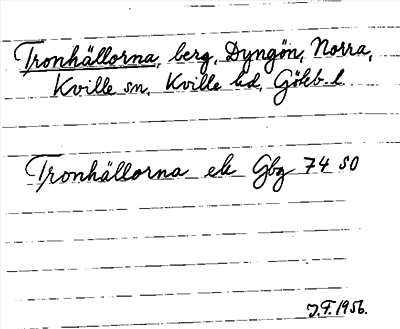 Tronhällorna, berg, Dyngön, Norra,
Kville sn, Kville hd, Göteb. l.
Tronhällorna ek Gbg 74 SO
J.F. 1956.